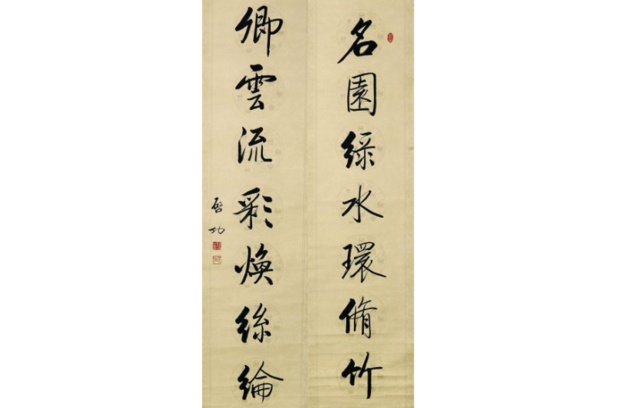 名園綠水環脩竹
卿雲流彩煥絲綸
啓功